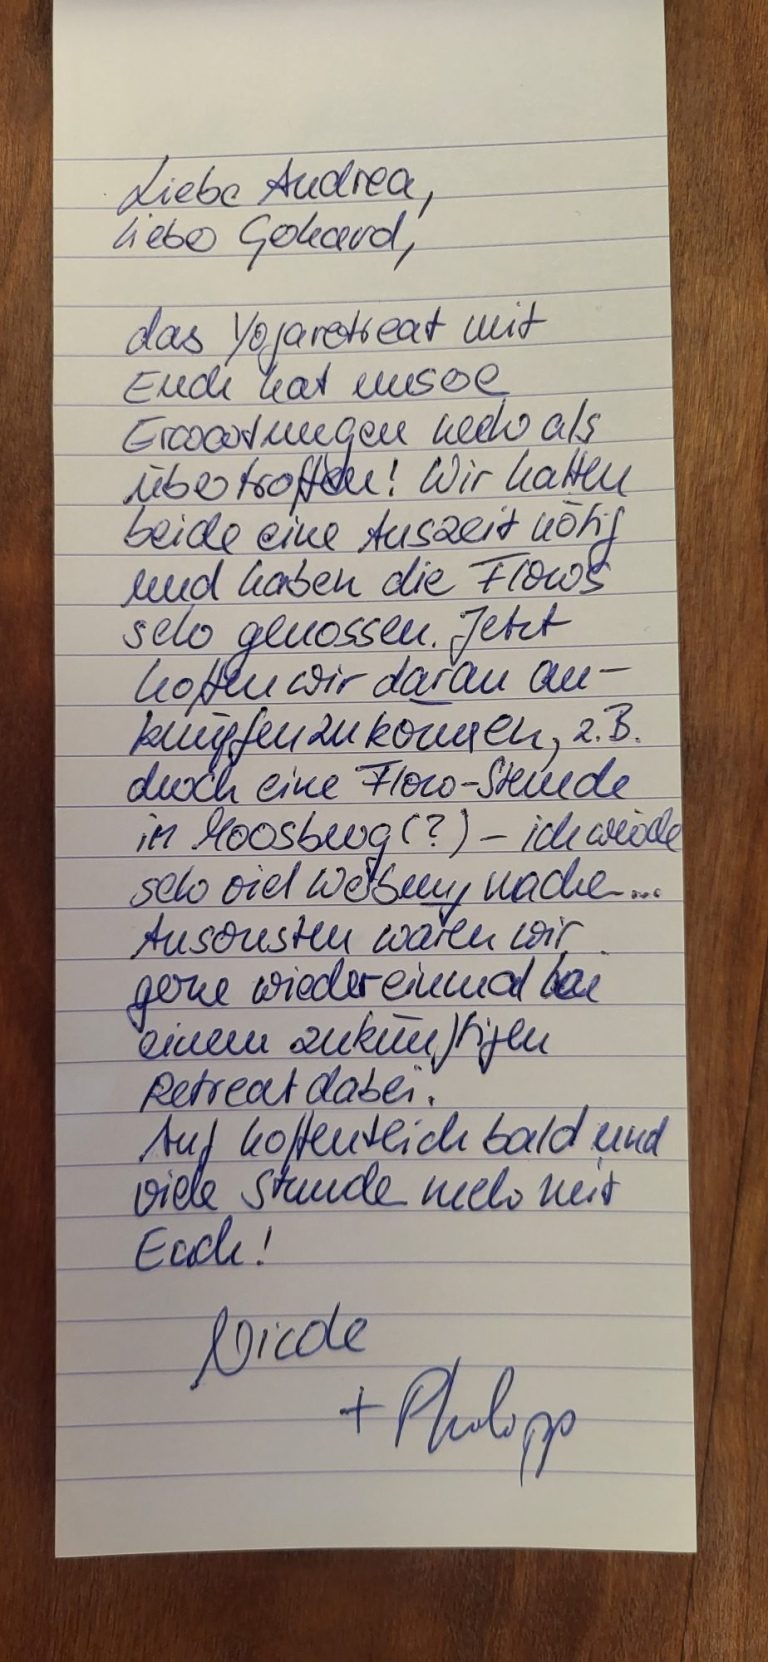 Liebe Andrea,
lieber Gerhard,
das Yogaretreat mit
Euch hat unsere
Erwartungen mehr als
übertroffen! Wir hatten
beide eine Auszeit nötig
und haben die Flows
sehr genossen. Jetzt
hoffen wir daran an-
knüpfen zu können, z.B.
durch eine Flow-Stunde
in Moosburg (?) – ich würde
sehr viel Werbung machen...
Ansonsten wären wir
gerne wieder einmal bei
einem zukünftigen
Retreat dabei.
Auf hoffentlich bald und
viele Stunde mehr mit
Euch!
Nicole
+ Philipp